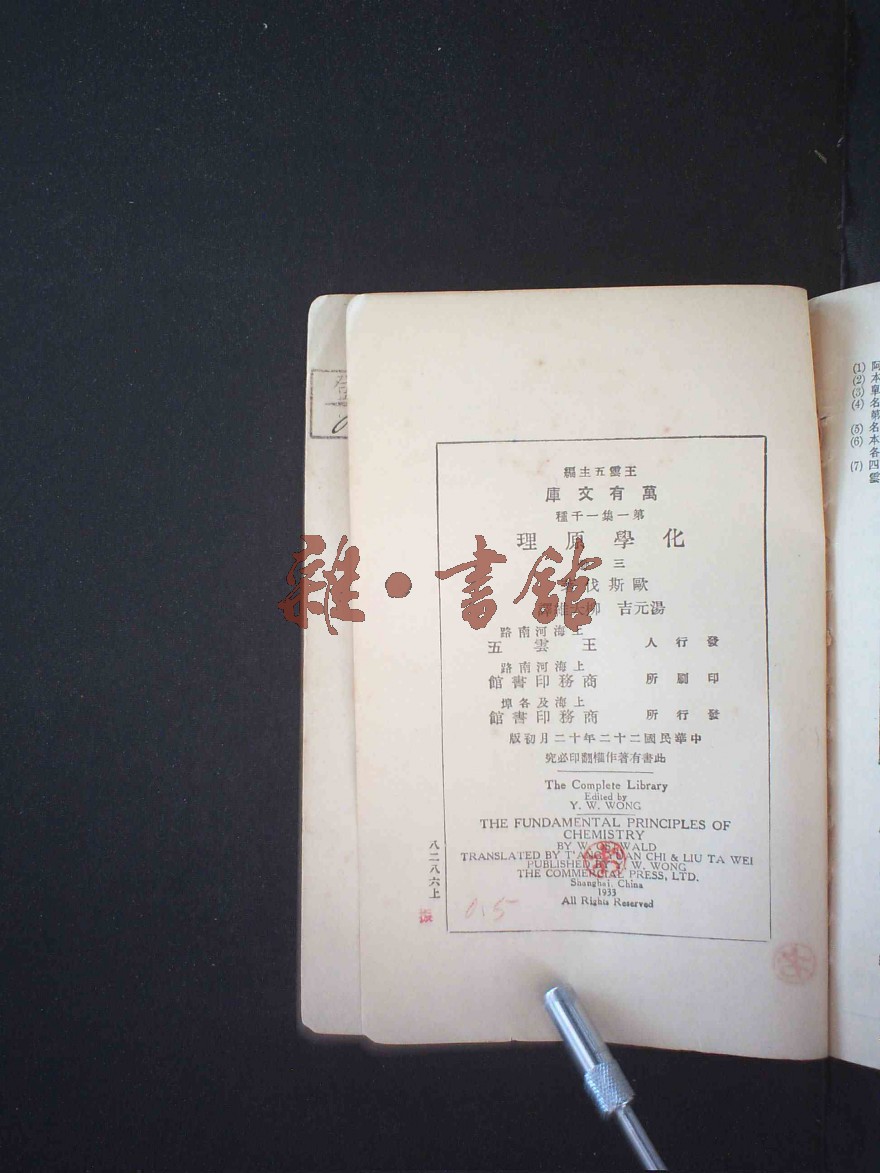 王雲五主編
萬有文庫
第一集一千種
化學原理
三
歐斯伐
湯元吉
上海河南路
發行人 王雲五
上海河南路
印刷所 商務印書館
上海及各埠
發行所 商務印書館
中華民國二十二年十二月初版
此書有著作權翻印必究
The Complete Library
Edited by
Y. W. WONG
THE FUNDAMENTAL PRINCIPLES OF
CHEMISTRY
BY W. OSTWALD
TRANSLATED BY T'ANG YUAN CHI & LIU TA WEI
PUBLISHED BY Y. W. WONG
THE COMMERCIAL PRESS, LTD.
Shanghai, China
1933
All Rights Reserved
0.5
八二八六上
雜·書館
(1) 阿
(2) 本
(3) 單
(4) 名
(5) 名
(6) 本
各
(7) 四
雲